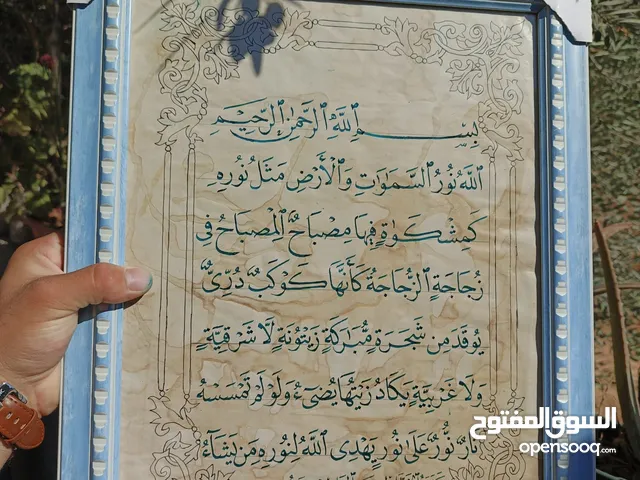 بِسْمِ ٱللَّهِ ٱلرَّحْمَٰنِ ٱلرَّحِيمِ
ٱللَّهُ نُورُ ٱلسَّمَٰوَٰتِ وَٱلْأَرْضِ مَثَلُ نُورِهِ
كَمِشْكَوٰةٍ فِيهَا مِصْبَاحٌ ٱلْمِصْبَاحُ فِي
زُجَاجَةٍ ٱلزُّجَاجَةُ كَأَنَّهَا كَوْكَبٌ دُرِّيٌّ
يُوقَدُ مِن شَجَرَةٍ مُّبَارَكَةٍ زَيْتُونَةٍ لَا شَرْقِيَّةٍ
وَلَا غَرْبِيَّةٍ يَكَادُ زَيْتُهَا يُضِيءُ وَلَوْ لَمْ تَمْسَسْهُ
نَارٌ نُّورٌ عَلَىٰ نُورٍ يَهْدِي ٱللَّهُ لِنُورِهِ مَن يَشَاءُ
السوق المفتوح
opensooq.com